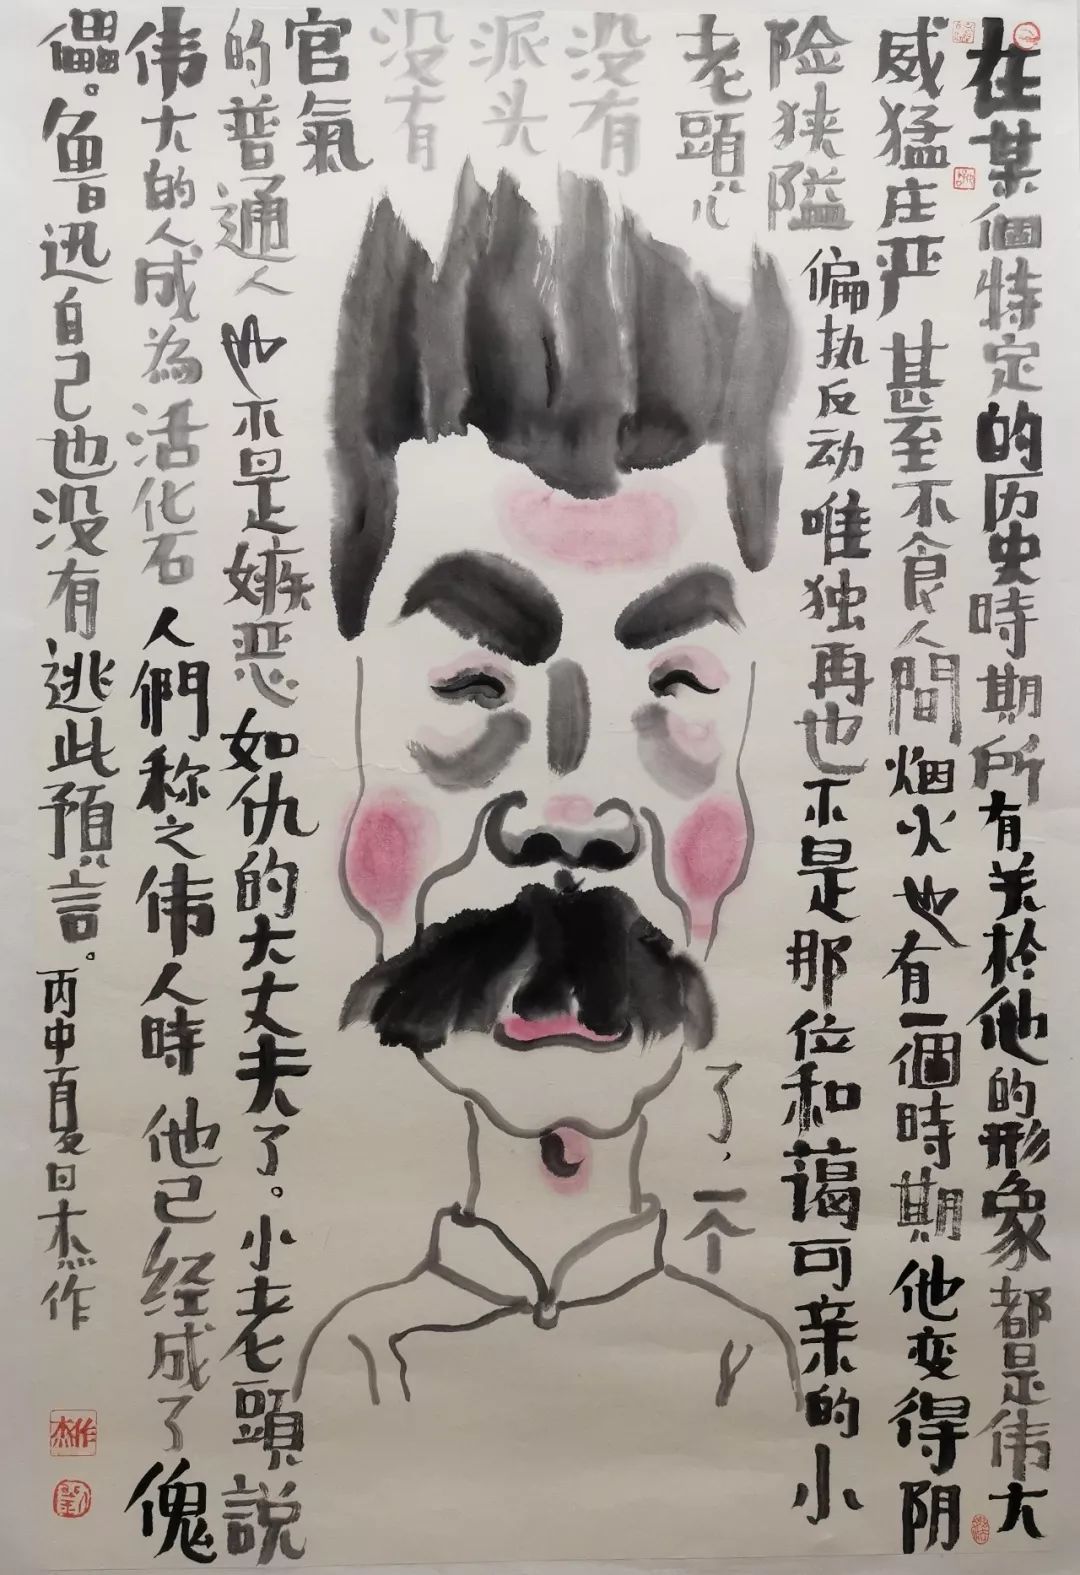 在某個特定的历史時期所有关於他的形象都是伟大
威猛庄严甚至不食人間烟火也有一個時期他变得阴
险狭隘偏执反动唯独再也不是那位和蔼可亲的小
老頭儿了,一个
没有
派头
没有
官氣
的普通人也不是嫉恶如仇的大丈夫了。小老頭説
伟大的人成為活化石人們称之伟人時他已经成了傀
儡。魯迅自己也没有逃此預言。丙申夏日杰作
杰作
劉